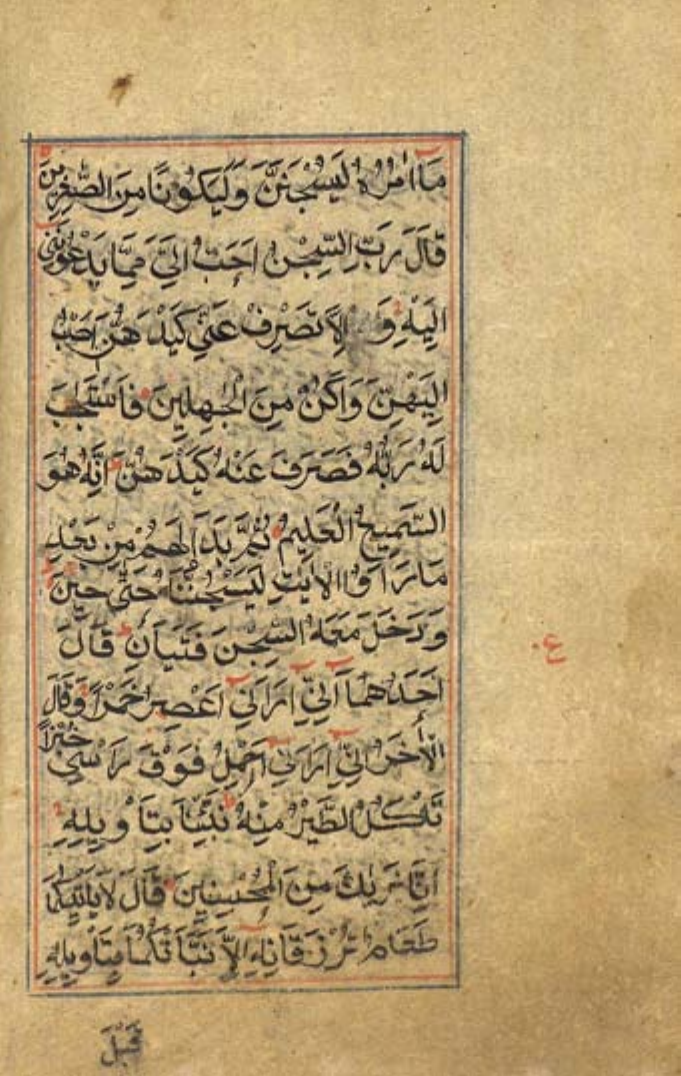 مَا اٰمُرُهُ لَيُسْجَنَنَّ وَلَيَكُونًا مِنَ الصّٰغِرِينَ
قَالَ رَبِّ السِّجْنُ اَحَبُّ اِلَيَّ مِمَّا يَدْعُونَنِي
اِلَيْهِ وَ اِلَّا تَصْرِفْ عَنِّي كَيْدَهُنَّ اَصْبُ
اِلَيْهِنَّ وَاَكُنْ مِنَ الْجٰهِلِينَ فَاسْتَجَابَ
لَهُ رَبُّهُ فَصَرَفَ عَنْهُ كَيْدَهُنَّ اِنَّهُ هُوَ
السَّمِيعُ الْعَلِيمُ ثُمَّ بَدَا لَهُمْ مِنْ بَعْدِ
مَا رَاَوُا الْاٰيٰتِ لَيَسْجُنُنَّهُ حَتّٰى حِينٍ
وَدَخَلَ مَعَهُ السِّجْنَ فَتَيَانِ قَالَ
اَحَدُهُمَا اِنِّي اَرَانِي اَعْصِرُ خَمْرًا وَقَالَ
الْاٰخَرُ اِنِّي اَرَانِي اَحْمِلُ فَوْقَ رَاْسِي خُبْزًا
تَاْكُلُ الطَّيْرُ مِنْهُ نَبِّئْنَا بِتَاْوِيلِهِ
اِنَّا نَرٰيكَ مِنَ الْمُحْسِنِينَ قَالَ لَا يَاْتِيكُمَا
طَعَامٌ تُرْزَقَانِهِ اِلَّا نَبَّاْتُكُمَا بِتَاْوِيلِهِ
قَبْلَ
ع